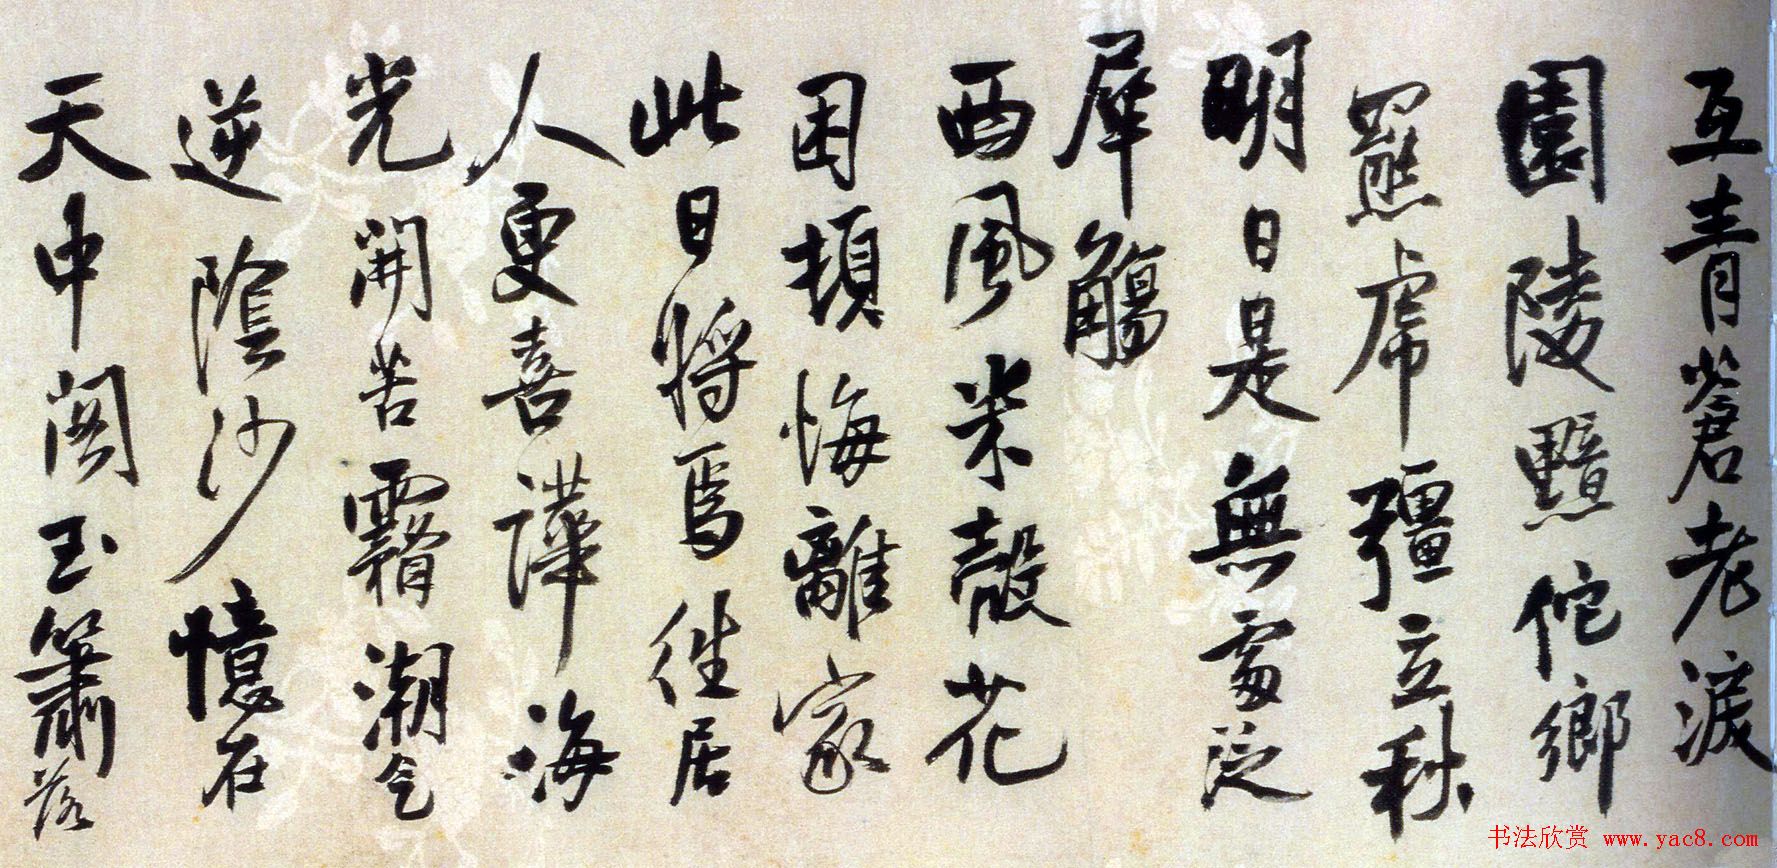 互青蒼老淚
園陵黯佗鄉
羆虎彊立秋
明日是無處泛
犀觴
西風米殼花
困頓悔離家
此日將焉往居
人更喜譁海
光開苦霧潮气
逆陰沙憶在
天中閣玉簫落
书法欣赏 www.yac8.com